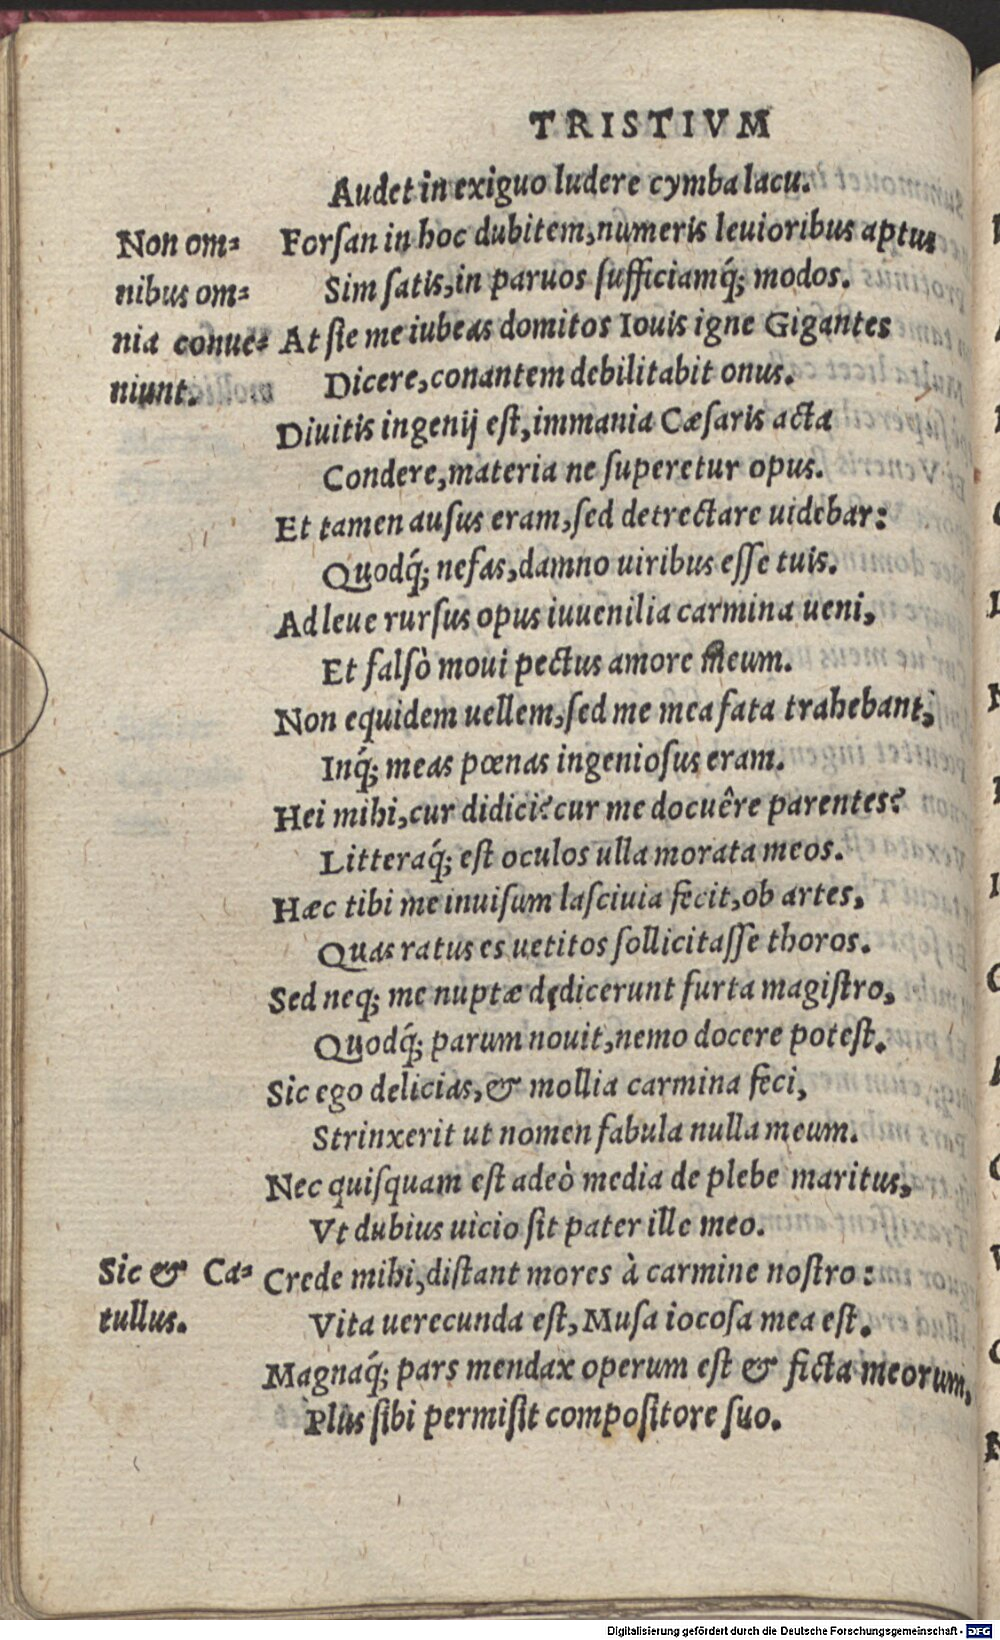 TRISTIVM
Audet in exiguo ludere cymba lacu.
Non om= Forſan in hoc dubitem, numeris leuioribus aptus
nibus om= Sim ſatis, in paruos ſufficiamq́; modos.
nia conue= At ſie me iubeas domitos Iouis igne Gigantes
niunt. Dicere, conantem debilitabit onus.
Diuitis ingenij eſt, immania Cæſaris acta
Condere, materia ne ſuperetur opus.
Et tamen auſus eram, ſed detrectare uidebar:
Quodq́; nefas, damno uiribus eſſe tuis.
Ad leue rurſus opus iuuenilia carmina ueni,
Et falſò moui pectus amore meum.
Non equidem uellem, ſed me mea fata trahebant,
Inq́; meas pœnas ingenioſus eram.
Hei mihi, cur didici? cur me docuêre parentes?
Litteraq́; eſt oculos ulla morata meos.
Hæc tibi me inuiſum laſciuia fecit, ob artes,
Quas ratus es uetitos ſollicitaſſe thoros.
Sed neq; me nuptæ dędicerunt furta magiſtro,
Quodq́; parum nouit, nemo docere poteſt.
Sic ego delicias, & mollia carmina feci,
Strinxerit ut nomen fabula nulla meum.
Nec quiſquam eſt adeò media de plebe maritus,
Vt dubius uicio ſit pater ille meo.
Sic & Ca= Crede mihi, diſtant mores à carmine noſtro:
tullus. Vita uerecunda eſt, Muſa iocoſa mea eſt.
Magnaq́; pars mendax operum eſt & ficta meorum,
Plus ſibi permiſit compoſitore ſuo.
Digitalisierung gefördert durch die Deutsche Forschungsgemeinschaft - DFG